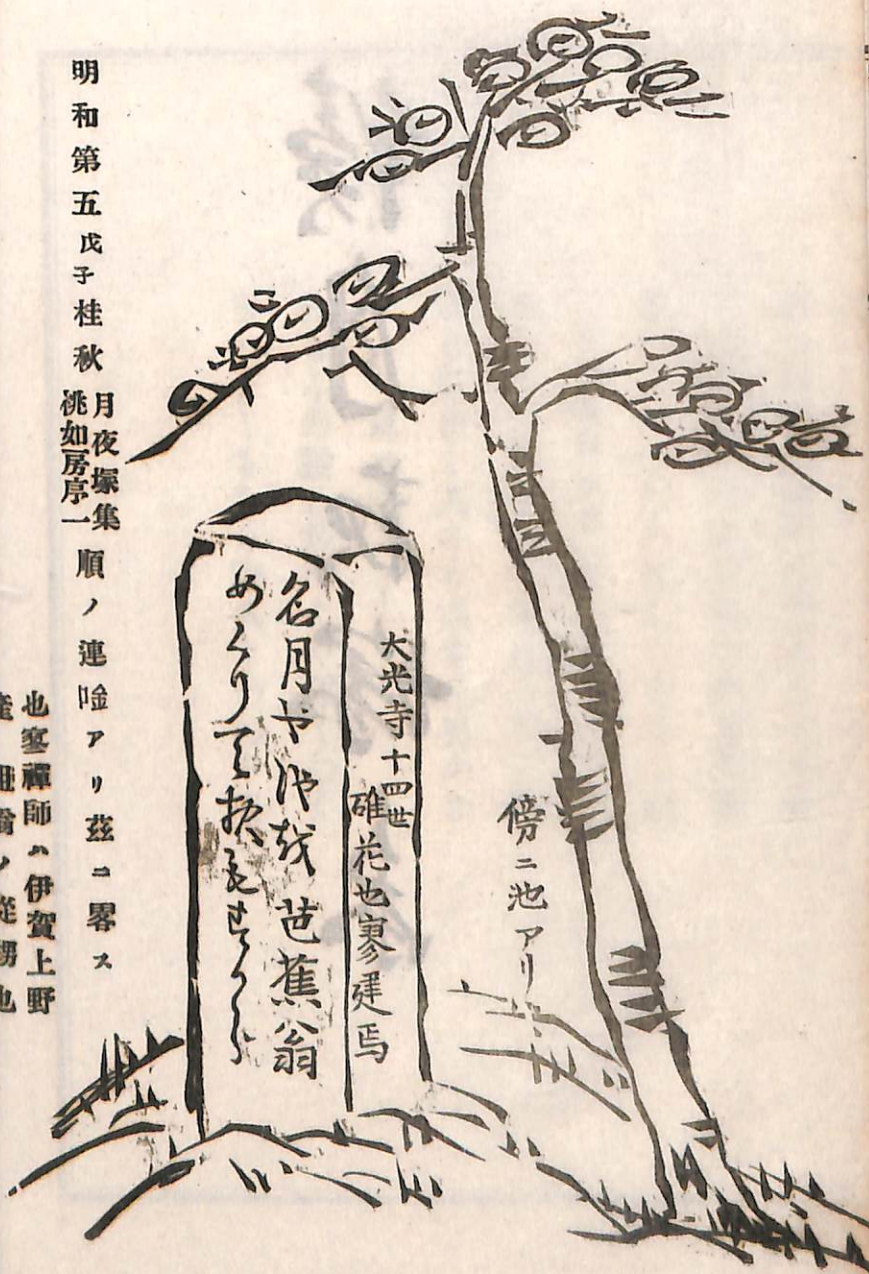 傍ニ池アリ
大光寺十四世
碓花也寥建焉
名月や池越 芭蕉翁
めくりて夜もすから
明和第五戊子桂秋 月夜塚集 桃如房序一 順ノ連唫アリ茲ニ畧ス
也寥禪師ハ伊賀上野